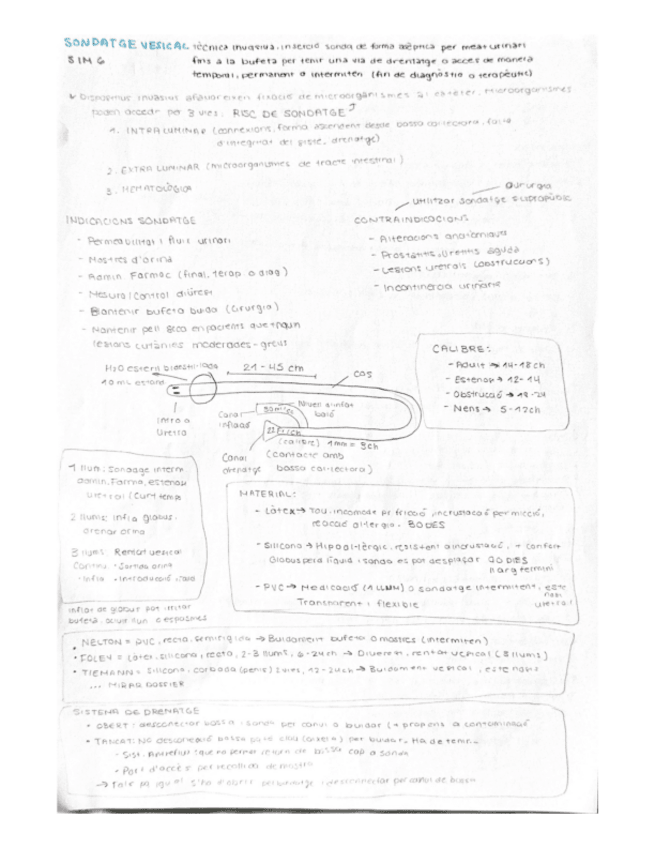 SONDATGE VESICAL tècnica invasiva, inserció sonda de forma asèptica per meat urinari
SIM 6
fins a la bufeta per tenir una via de drenatge o acces de manera
temporal, permanent o intermitén (fin de diagnòstic o terapèutic)
Dispositius invasius afavoreixen fixació de microorganismes al catèter. Microorganismes
poden accedir per 3 vies: RISC DE SONDATGE
1. INTRALUMINAR (connexions, forma ascendent desde bossa col·lectora, falta
d'integritat del sist, drenatge)
2. EXTRALUMINAR (microorganismes de tracte intestinal)
3. HEMATOLÒGICA
Cirurgia
Utilitzar sondatge suprapúbic
INDICACIONS SONDATGE
- Permeabilitat i fluix urinari
- Mostres d'orina
- Admin. Farmac (final. terap o diag)
- Mesura/Control diüresi
- Mantenir bufeta buida (Cirurgia)
- Mantenir pell seca en pacients que tinguin
lesions cutànies moderades-greus
CONTRAINDICACIONS
- Alteracions anatòmiques
- Prostatitis, Uretritis aguda
- Lesions uretrals (obstruccions)
- Incontinència urinària
CALIBRE:
- Adult → 14-18ch
- Estenosi → 12-14
- Obstrucció → 18-24
- Nens → 5-12ch
H2O esteril bidestilada
10 mL estons
21-45 cm
cos
Intro a
Uretra
Canal
inflado
30ml/cc
Nivell s'inflat
baló
22F/ch
(calibre) 1mm = 3ch
Canal
drenatge
(contacte amb
bossa col·lectora)
1 llum. Sondatge interm.
admin. Farma, estenosi
uretral / Curt temps
2 llums: infla globus.
drenar orina
3 llums: Rentat vesical
continu - Sortida orina
- Infla - Introducció
Inflat de globus pot irritar
bufeta, espasmes
MATERIAL:
- Làtex → Tou, incomode per fricció, incrustació per micció,
reacció al·lèrgia. 30 DIES
- Silicona → Hipoal·lèrgic, resistent a incrustació, + confort
Globus perd líquid i sonda es pot desplaçar 60 DIES
llarg termini
- PVC → Medicació (1 LLUM) o sondatge intermitent, este
nosi
uretral
Transparent i flexible
• NELTON = PVC, recta, semirigida → Buidament bufeta o mostres (intermiten)
• FOLEY = Làtex, silicona, recta, 2-3 llums, 6-24ch → Diüresi, rentat vesical (3 llums)
• TIEMANN = silicona, corbada (penis) 12-24ch → Buidament vesical, estenosis
... MIRAR DOSSIER
SISTEMA DE DRENATGE
• OBERT: desconectar bossa i sonda per canvi o buidar (+ propens a contaminació
• TANCAT: NO desconexió bossa per buidar. Ha de tenir...
- Sist. Antireflux (que no permet retorn de bossa cap a sonda
- Port d'accés per recollida de mostra